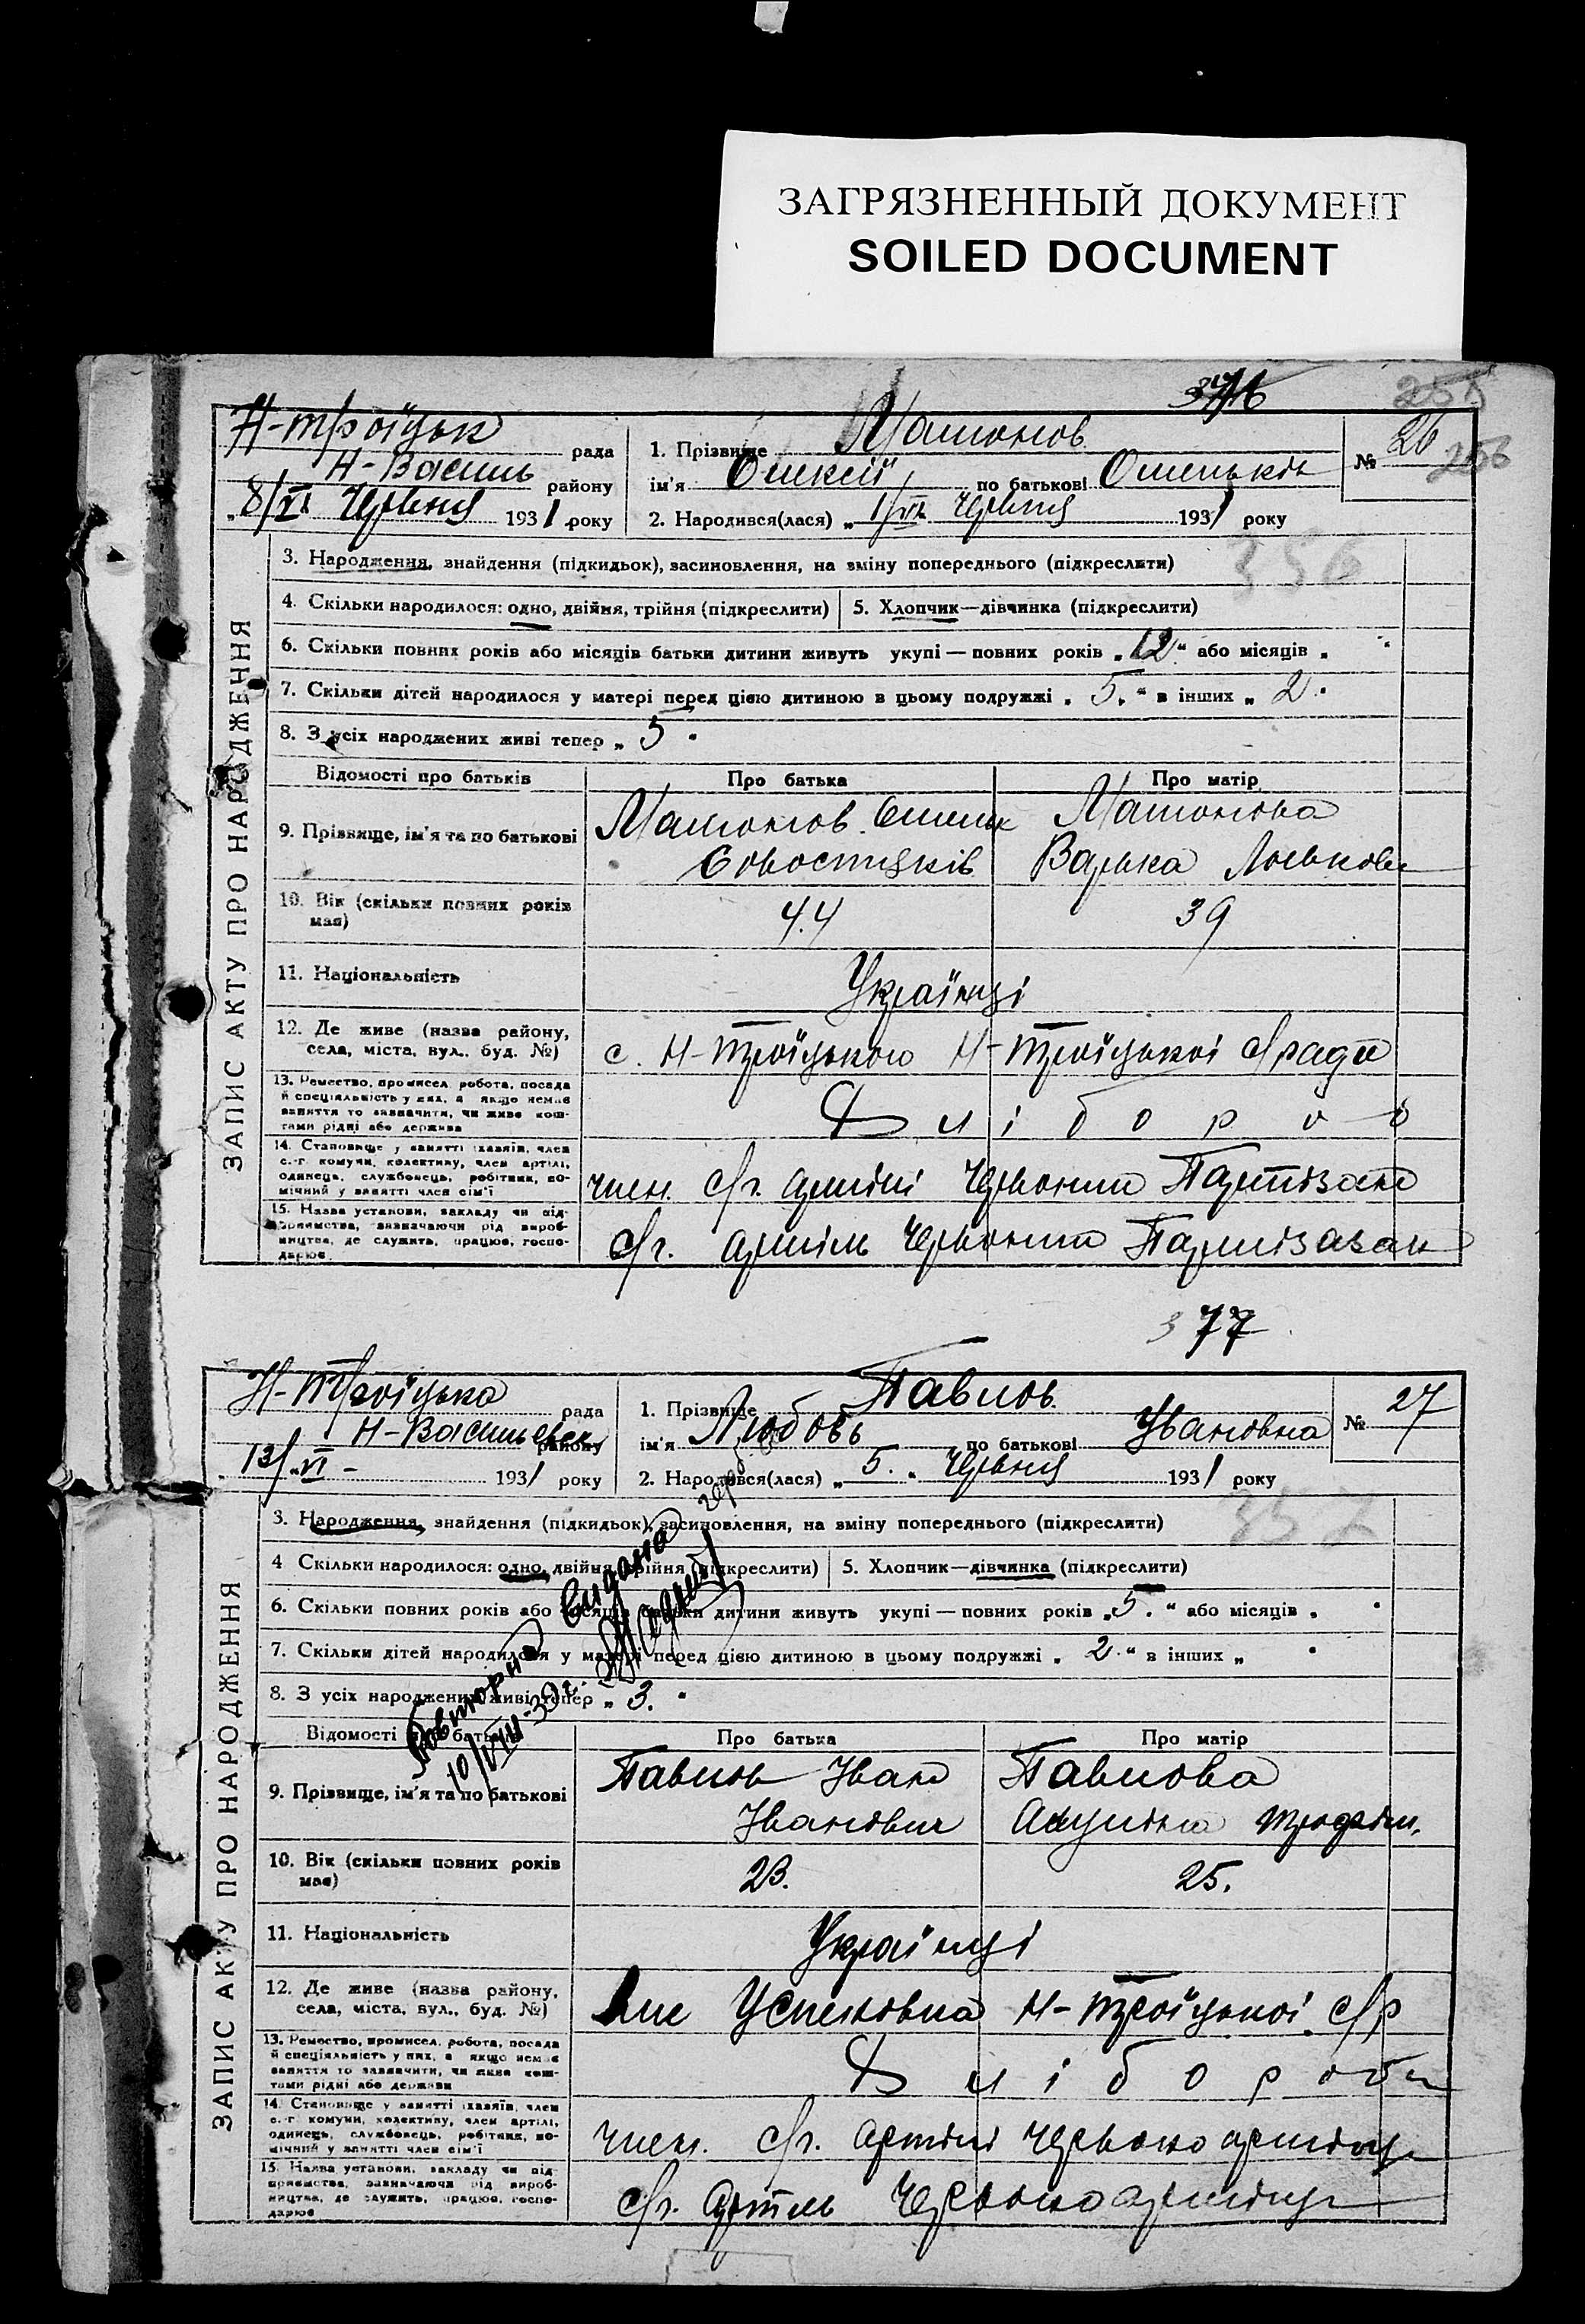 ЗАГРЯЗНЕННЫЙ ДОКУМЕНТ
SOILED DOCUMENT
ЗАПИС АКТУ ПРО НАРОДЖЕННЯ
Н-троїцьк рада
Н-Василь району
8/VI Червня 1931 року
1. Прізвище
ім'я Олексій по батькові Омельків
2. Народився(лася) „ 1/VI. Червня 1931 року
№ 26
256
356
3. Народження, знайдення (підкидьок), засиновлення, на зміну попереднього (підкреслити)
4. Скільки народилося: одно, двійня, трійня (підкреслити)
5. Хлопчик—дівчинка (підкреслити)
6. Скільки повних років або місяців батьки дитини живуть укупі — повних років „12“ або місяців „ “
7. Скільки дітей народилося у матері перед цією дитиною в цьому подружжі „ 5. “ в інших „ 2.
8. З усіх народжених живі тепер „ 5 “
Відомості про батьків
Про батька
Про матір
9. Прізвище, ім'я та по батькові
Варька
10. Вік (скільки повних років має)
44
39
11. Національність
Українці
12. Де живе (назва району, села, міста, вул., буд. №)
с. Н-Троїцького Н-Троїцької с/ради
13. Ремество, промисел, робота, посада й спеціяльність у них, а якщо немає заняття то зазначити, чи живе коштами рідні або держава
Хліборо
14. Становище у занятті (хазяїн, член с.-г. комуни, колективу, член артілі, одинець, службовець, робітник, помічний у занятті член сім'ї
член. с/г. артілі Червоний Партізан
15. Назва установи, закладу чи підприємства, зазначаючи рід виробництва, де служить, працює, господарює
с/г. артіль Червоний Партізазан
377
ЗАПИС АКТУ ПРО НАРОДЖЕННЯ
Н-Троїцька рада
Н-Васильевск району
13/VI - 1931 року
1. Прізвище Павлов
ім'я Любовь по батькові Івановна
2. Народився(лася) „ 5. „ Червня 1931 року
№ 27
357
3. Народження, знайдення (підкидьок), засиновлення, на зміну попереднього (підкреслити)
4 Скільки народилося: одно, двійня, трійня (підкреслити)
5. Хлопчик—дівчинка (підкреслити)
6. Скільки повних років або місяців батьки дитини живуть укупі — повних років „5. “ або місяців „ “
7. Скільки дітей народилося у матері перед цією дитиною в цьому подружжі „ 2. “ в інших „ “
8. З усіх народжених живі тепер „ 3. “
Повторна видана
10/VIII-39 г.
Відомості про батьків
Про батька
Про матір
9. Прізвище, ім'я та по батькові
Павлов Іван
Іванович
Павлова
Акуліна Трофім.
10. Вік (скільки повних років має)
23.
25.
11. Національність
Українці
12. Де живе (назва району, села, міста, вул., буд. №)
Успеновка Н-Троїцької с/р
13. Ремество, промисел, робота, посада й спеціяльність у них, а якщо немає заняття то зазначити, чи живе коштами рідні або держави
Хлібороби
14. Становище у занятті (хазяїн, член с.-г. комуни, колективу, член артілі, одинець, службовець, робітник, помічний у занятті член сім'ї
член. с/г. артілі Червоноармієць
15. Назва установи, закладу чи підприємства, зазначаючи рід виробництва, де служить, працює, господарює
с/г. Артіль Червоноармієць